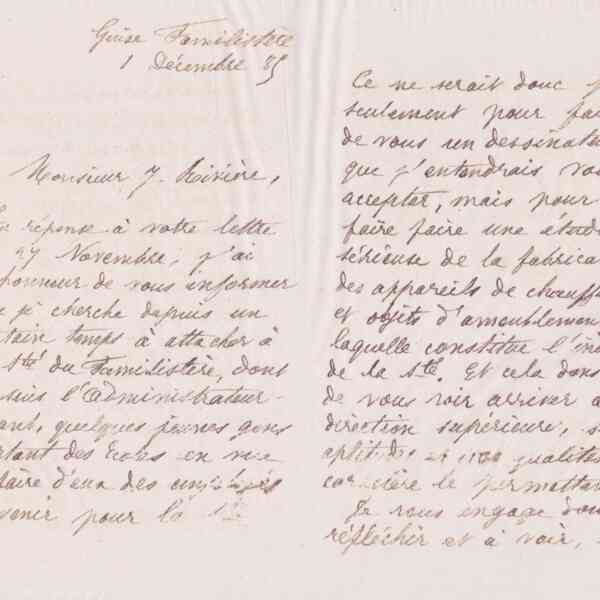 Guise Familistère
1 Décembre 85
Monsieur J. Rivière,
réponse à votre lettre
27 Novembre, j'ai
honneur de vous informer
e je cherche depuis un
tain temps à attacher à
Sté du Familistère, dont
suis l'administrateur-
ant, quelques jeunes gens
rtant des Écoles en vue
faire d'eux des
venir pour la Sté
Ce ne serait donc p
seulement pour fai
de vous un dessinate
que j'entendrais vo
accepter, mais pour
faire faire une étude
sérieuse de la fabrica
des appareils de chauff
et objets d'ameublemen
laquelle constitue l'in
de la Sté. Et cela dans
de vous voir arriver à
direction supérieure, s
aptitudes et qualités
caractère le permettan
Je vous engage don
réfléchir et à voir,